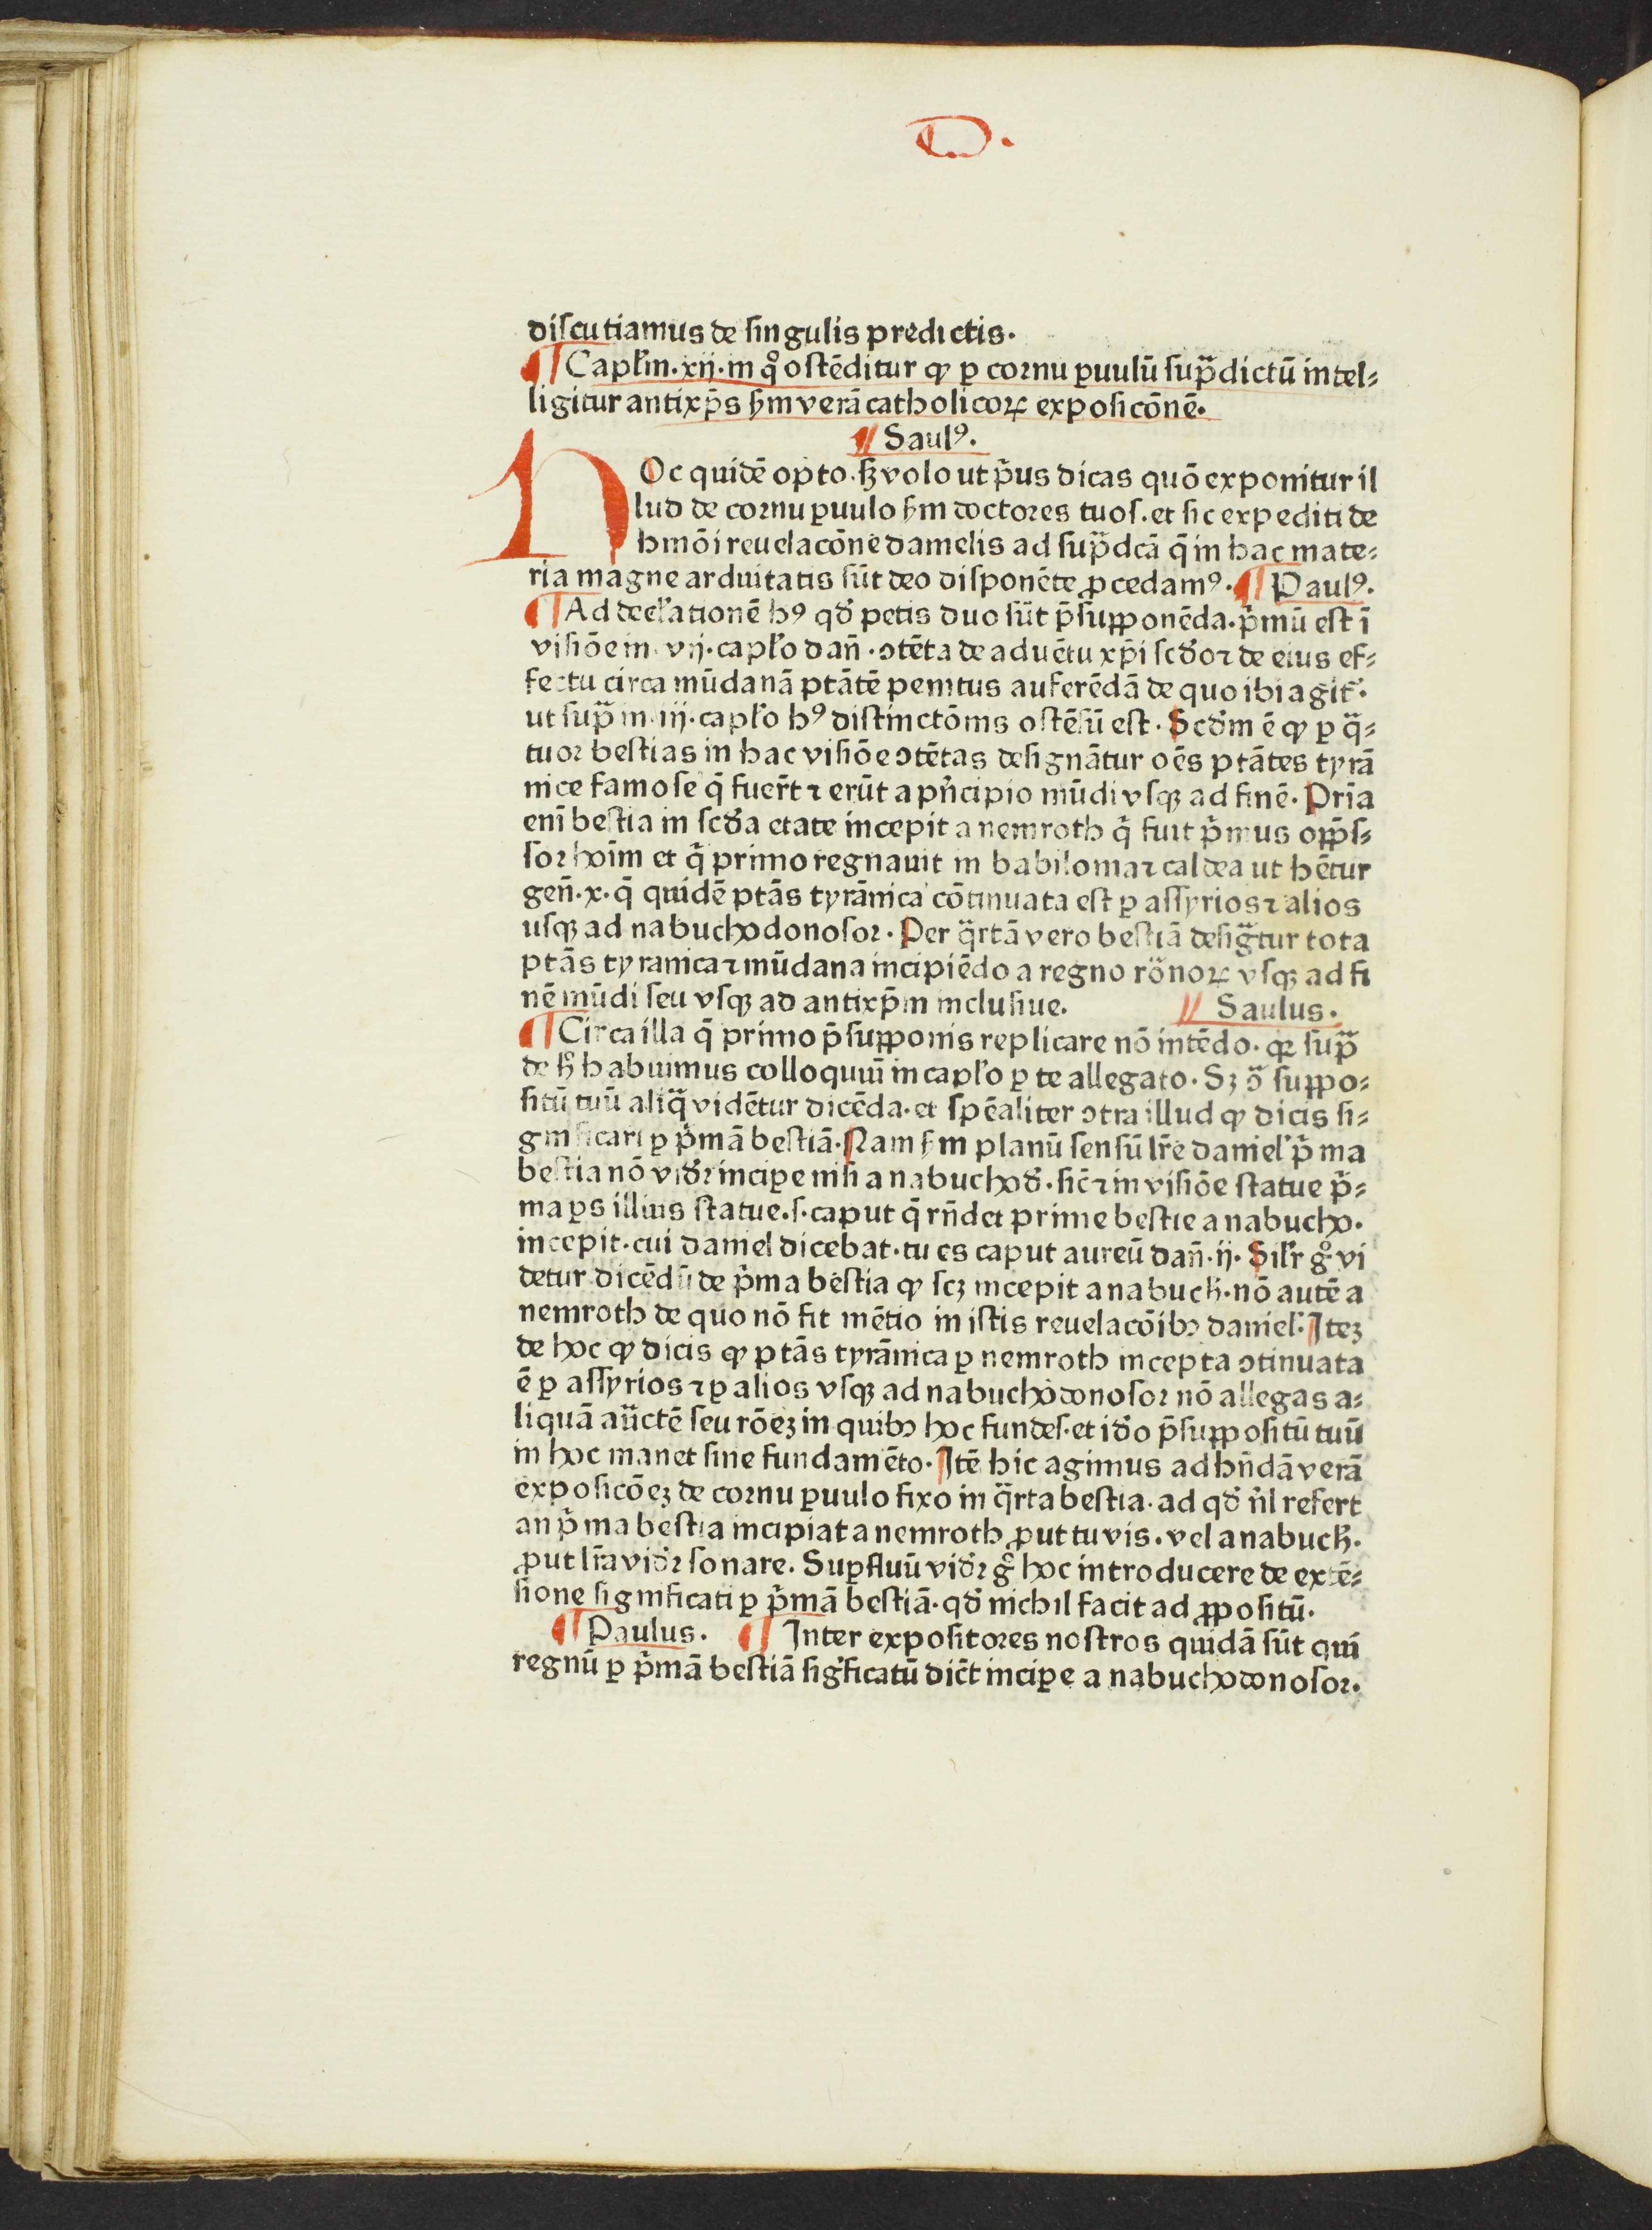 D.
diſcutiamus de ſingulis predictis.
¶ Capłm. xij. in qͦ oſtēditur ꝙ ꝑ cornu ꝑuulū ſupᷓdictū intel⸗
ligitur antixp̄s ẜm verā catholicoꝝ expoſicōnē.
¶ Saulꝰ.
HOc quidē opto. ſꝫ volo ut p̄us dicas quō exponitur il
lud de cornu ꝑuulo ẜm doctores tuoſ. et ſic expediti de
hmōi reuelacōne danielis ad ſupᷓdcā q̄ in hac mate⸗
ria magne arduitatis ſūt deo diſponēte ꝓcedamꝰ. ¶ Paulꝰ.
¶ Ad decłationē hꝰ qđ petis duo ſūt p̄ſuꝓponēda. p̄mū eſt ī
viſiōe in. vij. capło dan̄. ꝯtēta de aduētu xp̄i ſcđo ⁊ de eius ef⸗
fectu circa mūdanā ptātē penitus auferēdā de quo ibi agit᷑.
ut ſupᷓ in. iij. capło hꝰ diſtinctōnis oſtēſū eſt. Scđm ē ꝙ ꝑ qᷓ⸗
tuor beſtias in hac viſiōe ꝯtētas deſignātur oēs ptātes tyrā
nice famoſe q̄ fuer̄t ⁊ erūt a pͥncipio mūdi vſqꝫ ad finē. Pria
eni beſtia in ſcđa etate incepit a nemroth qͥ fuit pͥmus oꝓp̄ſ⸗
ſor hoīm et qͥ primo regnauit in babilonia ⁊ caldea ut hētur
gen̄. x. q̄ quidē ptās tyrānica cōtinuata eſt ꝑ aſſyrios ⁊ alios
uſqꝫ ad nabuchodonoſor. Per qᷓrtā vero beſtiā deſigᷓtur tota
ptās tyranica ⁊ mūdana incipiēdo a regno roᷓnoꝝ vſqꝫ ad fi
nē mūdi ſeu vſqꝫ ad antixp̄m incluſiue. ¶ Saulus.
¶ Circa illa q̄ primo p̄ſuꝓponis replicare nō intēdo. qꝛ ſupᷓ
de ħ habuimus colloquiū in capło ꝑ te allegato. Sꝫ ꝯᷓ ſuppo⸗
ſitū tuū aliqᷓ vidētur dicēda. et ſpēaliter ꝯtra illud ꝙ dicis ſi⸗
gnificari ꝑ pͥmā beſtiā. Nam ẜm planū ſenſū lr̄e daniel̓ pͥma
beſtia nō viđꝛ inciꝑe niſi a nabuchođ. ſic̄ ⁊ in viſiōe ſtatue pͥ⸗
ma ꝑs illius ſtatue. ſ. caput q̄ rn̄det prime beſtie a nabucho.
incepit. cui daniel dicebat. tu es caput aureū dan̄. ij. Sił̓r gͦ vi
detur dicēdū de pͥma beſtia ꝙ ſcꝫ incepit a nabuch̄. nō autē a
nemroth de quo nō fit mētio in iſtis reuelacōibꝰ daniel̓. Iteꝫ
de hoc ꝙ dicis ꝙ ptās tyrānica ꝑ nemroth incepta ꝯtinuata
ē ꝑ aſſyrios ⁊ ꝑ alios vſqꝫ ad nabuchodonoſor nō allegas a⸗
liquā auᷓctē ſeu rōeꝫ in quibꝰ hoc fundeſ. et iđo p̄ſuꝓpoſitū tuū
in hoc manet ſine fundamēto. Itē hic agimus ad hn̄dā verā
expoſicōeꝫ de cornu ꝑuulo fixo in qᷓrta beſtia. ad qđ nͥl refert
an pͥma beſtia incipiat a nemroth ꝓut tu vis. vel a nabuch̄.
ꝓut lr̄a viđꝛ ſonare. Suꝑfluū viđꝛ gͦ hoc introducere de extē⸗
ſione ſignificati ꝑ pͥmā beſtiā. qđ nichil facit ad ꝓpoſitū.
¶ Paulus. ¶ Inter expoſitores noſtros quidā ſūt qui
regnū ꝑ pͥmā beſtiā ſigͥficatū dicūt inciꝑe a nabuchodonoſor.